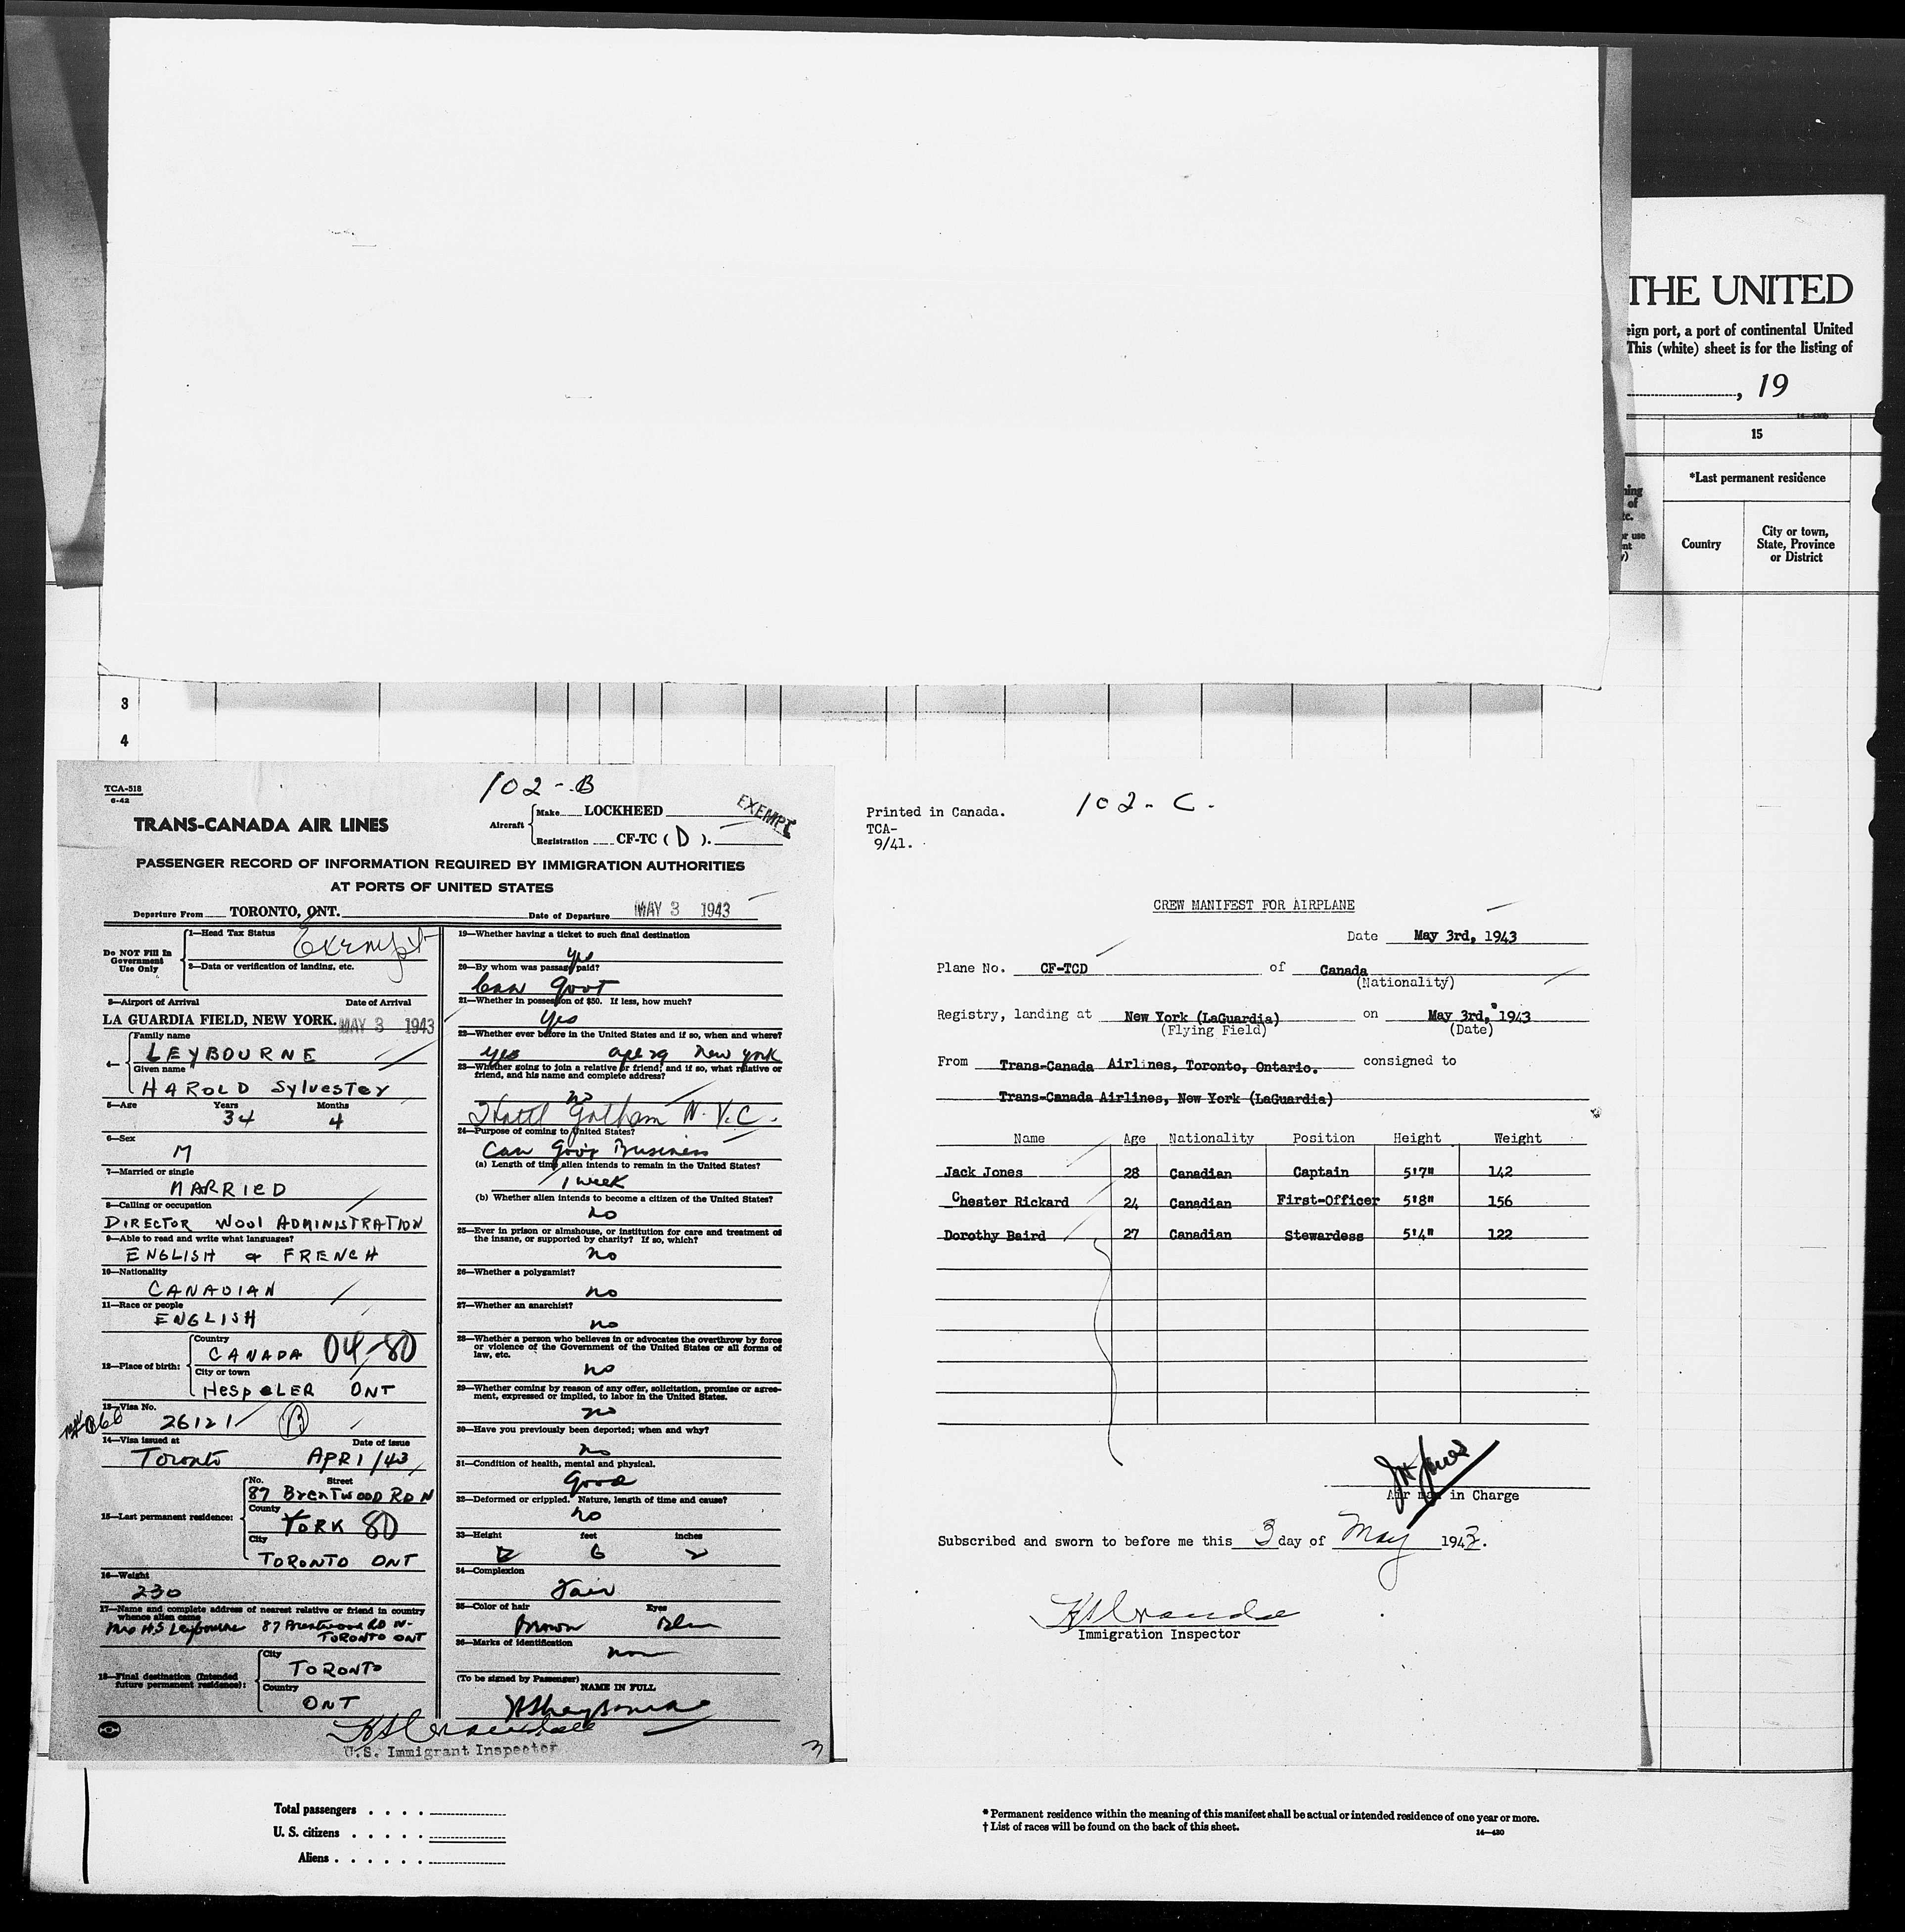 THE UNITED
eign port, a port of continental United
This (white) sheet is for the listing of
, 19
15
*Last permanent residence
Country
City or town,
State, Province
or District
3
4
TCA-518
6-42
102-B
TRANS-CANADA AIR LINES
Aircraft
Make LOCKHEED
Registration CF-TC ( D ).
EXEMPT
PASSENGER RECORD OF INFORMATION REQUIRED BY IMMIGRATION AUTHORITIES
AT PORTS OF UNITED STATES
Departure From TORONTO, ONT. Date of Departure MAY 3 1943
Do NOT Fill In
Government
Use Only
1—Head Tax Status
Exempt
2—Data or verification of landing, etc.
3—Airport of Arrival Date of Arrival
LA GUARDIA FIELD, NEW YORK. MAY 3 1943
4—
Family name
LEYBOURNE
Given name
HAROLD Sylvester
5—Age Years Months
34 4
6—Sex
M
7—Married or single
MARRIED
8—Calling or occupation
DIRECTOR WOOL ADMINISTRATION
9—Able to read and write what languages?
ENGLISH & FRENCH
10—Nationality
CANADIAN
11—Race or people
ENGLISH
12—Place of birth:
Country
CANADA 04-80
City or town
HESPELER ONT
13—Visa No.
26121 B
14—Visa issued at Date of issue
Toronto APR 1/43
15—Last permanent residence:
No. Street
87 BRENTWOOD RD N
County
YORK 80
City
TORONTO ONT
16—Weight
230
17—Name and complete address of nearest relative or friend in country
whence alien came
Mrs H S Leybourne 87 Brentwood RD N-
TORONTO ONT
18—Final destination (Intended
future permanent residence):
City
TORONTO
Country
ONT
19—Whether having a ticket to such final destination
yes
20—By whom was passage paid?
Can Govt
21—Whether in possession of $50. If less, how much?
Yes
22—Whether ever before in the United States and if so, when and where?
yes Apr 29 New York
23—Whether going to join a relative or friend; and if so, what relative or
friend, and his name and complete address?
no
Hotel Gotham N.Y.C.
24—Purpose of coming to United States?
Can Gov't Business
(a) Length of time alien intends to remain in the United States?
1 week
(b) Whether alien intends to become a citizen of the United States?
no
25—Ever in prison or almshouse, or institution for care and treatment of
the insane, or supported by charity? If so, which?
no
26—Whether a polygamist?
no
27—Whether an anarchist?
no
28—Whether a person who believes in or advocates the overthrow by force
or violence of the Government of the United States or all forms of
law, etc.
no
29—Whether coming by reason of any offer, solicitation, promise or agree-
ment, expressed or implied, to labor in the United States.
no
30—Have you previously been deported; when and why?
no
31—Condition of health, mental and physical.
Good
32—Deformed or crippled. Nature, length of time and cause?
no
33—Height feet inches
6 2
34—Complexion
Fair
35—Color of hair Eyes
Brown Blue
36—Marks of identification
none
(To be signed by Passenger)
NAME IN FULL
HSLeybourne
U.S. Immigrant Inspector
3
Printed in Canada.
TCA-
9/41.
102-C.
CREW MANIFEST FOR AIRPLANE
Date May 3rd, 1943
Plane No. CF-TCD of Canada
(Nationality)
Registry, landing at New York (LaGuardia) on May 3rd, 1943
(Flying Field) (Date)
From Trans-Canada Airlines, Toronto, Ontario. consigned to
Trans-Canada Airlines, New York (LaGuardia)
Name Age Nationality Position Height Weight
Jack Jones 28 Canadian Captain 5'7" 142
Chester Rickard 24 Canadian First-Officer 5'8" 156
Dorothy Baird 27 Canadian Stewardess 5'4" 122
Air man in Charge
Subscribed and sworn to before me this 3 day of May 1943.
Immigration Inspector
Total passengers
U. S. citizens
Aliens
* Permanent residence within the meaning of this manifest shall be actual or intended residence of one year or more.
† List of races will be found on the back of this sheet.
14—430